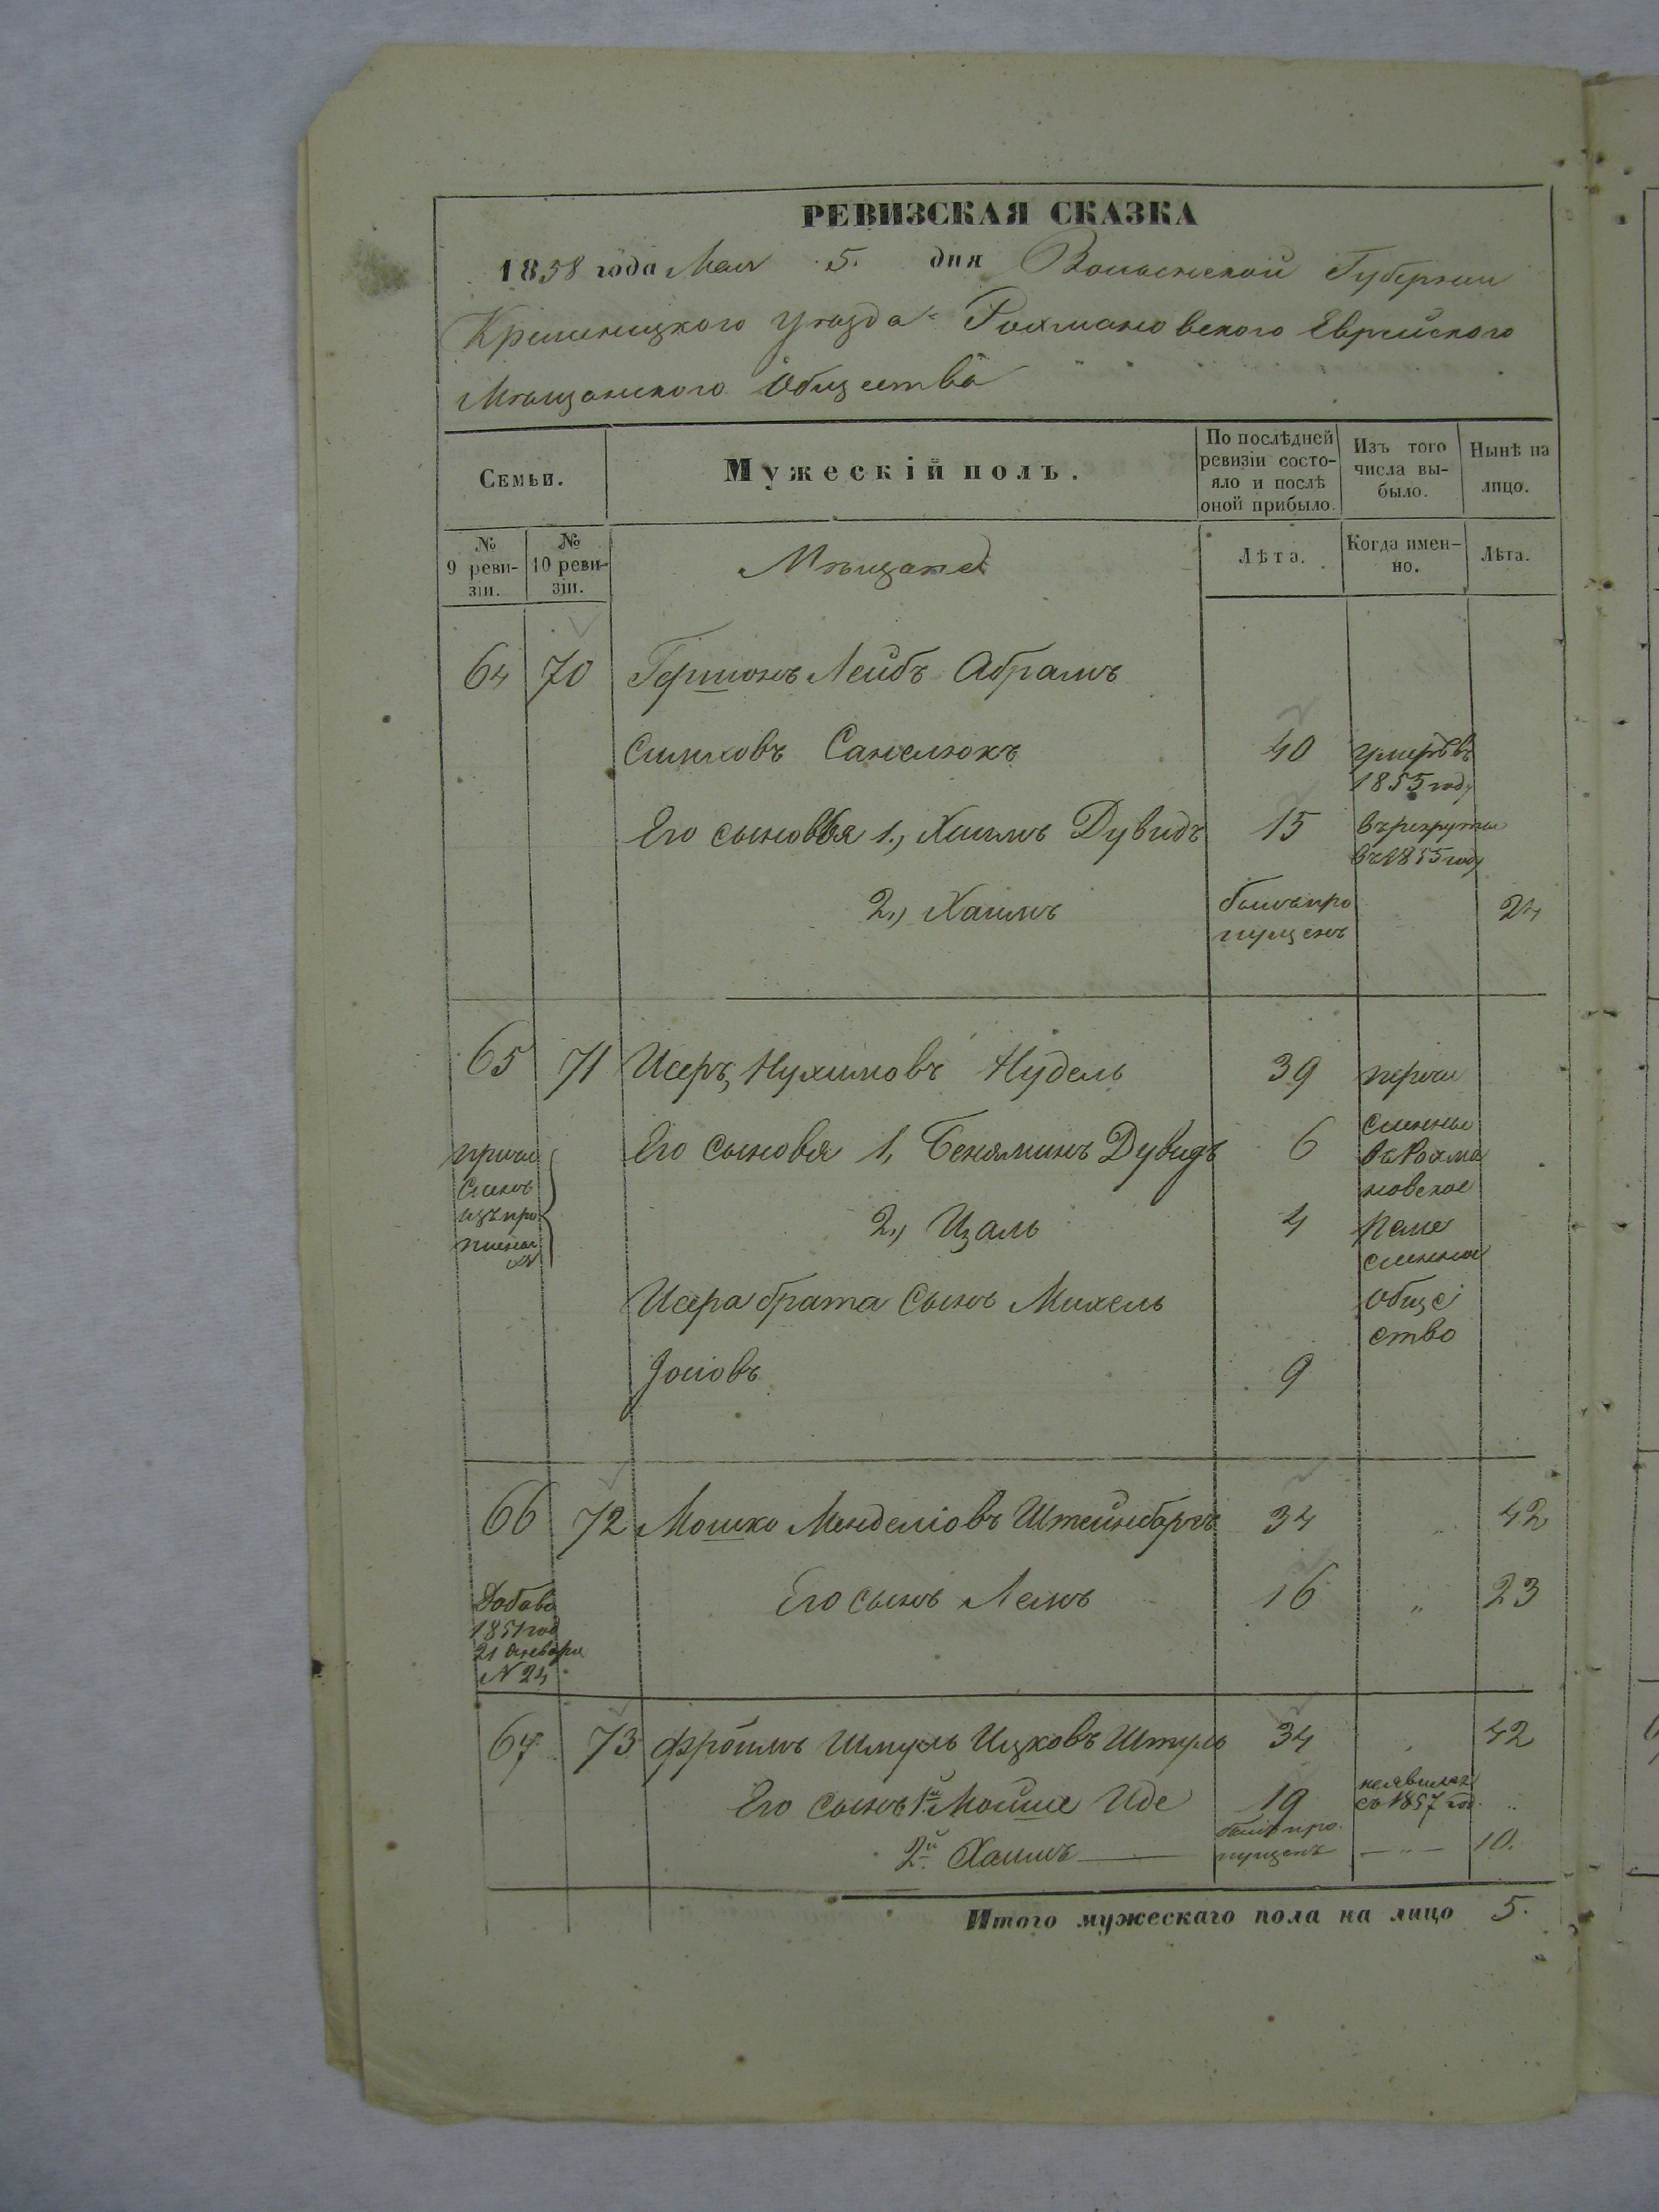 РЕВИЗСКАЯ СКАЗКА
1858 года Мая 5. дня Волынской Губернии
Кременецкого уѣзда Рохмановского Еврейского
Мѣщанского Общества
Семьи.
Мужескій полъ.
По послѣдней ревизіи состояло и послѣ оной прибыло.
Изъ того числа выбыло.
Нынѣ на лицо.
№ 9 ревизіи.
№ 10 ревизіи.
Мѣщане
Лѣта.
Когда именно.
Лѣта.
64 70 Гершонъ Лейбъ Абрамъ
Симховъ Санелюкъ 40 умеръ въ
1855 году
Его сыновья 1., Хаимъ Дувидъ 15 въ рекруты
въ 1855 году
2., Хаимъ былъ про 24
пущенъ
65 71 Исеръ Нухимовъ Нудель 39 перечи
Его сыновья 1, Беняминъ Дувидъ 6 сленны
въ Рохма
новское
причи
сленъ
изъ про
2., Изаль 4
Исера брата сынъ Михель обще
ство
Іосіовъ 9
66 72 Мошко Менделіовъ Штейнбаргъ 34 „ 42
Его сынъ Лемъ 16 „ 23
Добав
1851 год
21 января
№ 24
67 73 Фроимъ Шмуль Ицковъ Штирь 34 „ 42
Его сынъ 1й Мойше Иде 19 неявился
съ 1857 год. „
2й Хаимъ — былъ про
пущенъ — „ — 10.
Итого мужескаго пола на лицо 5.